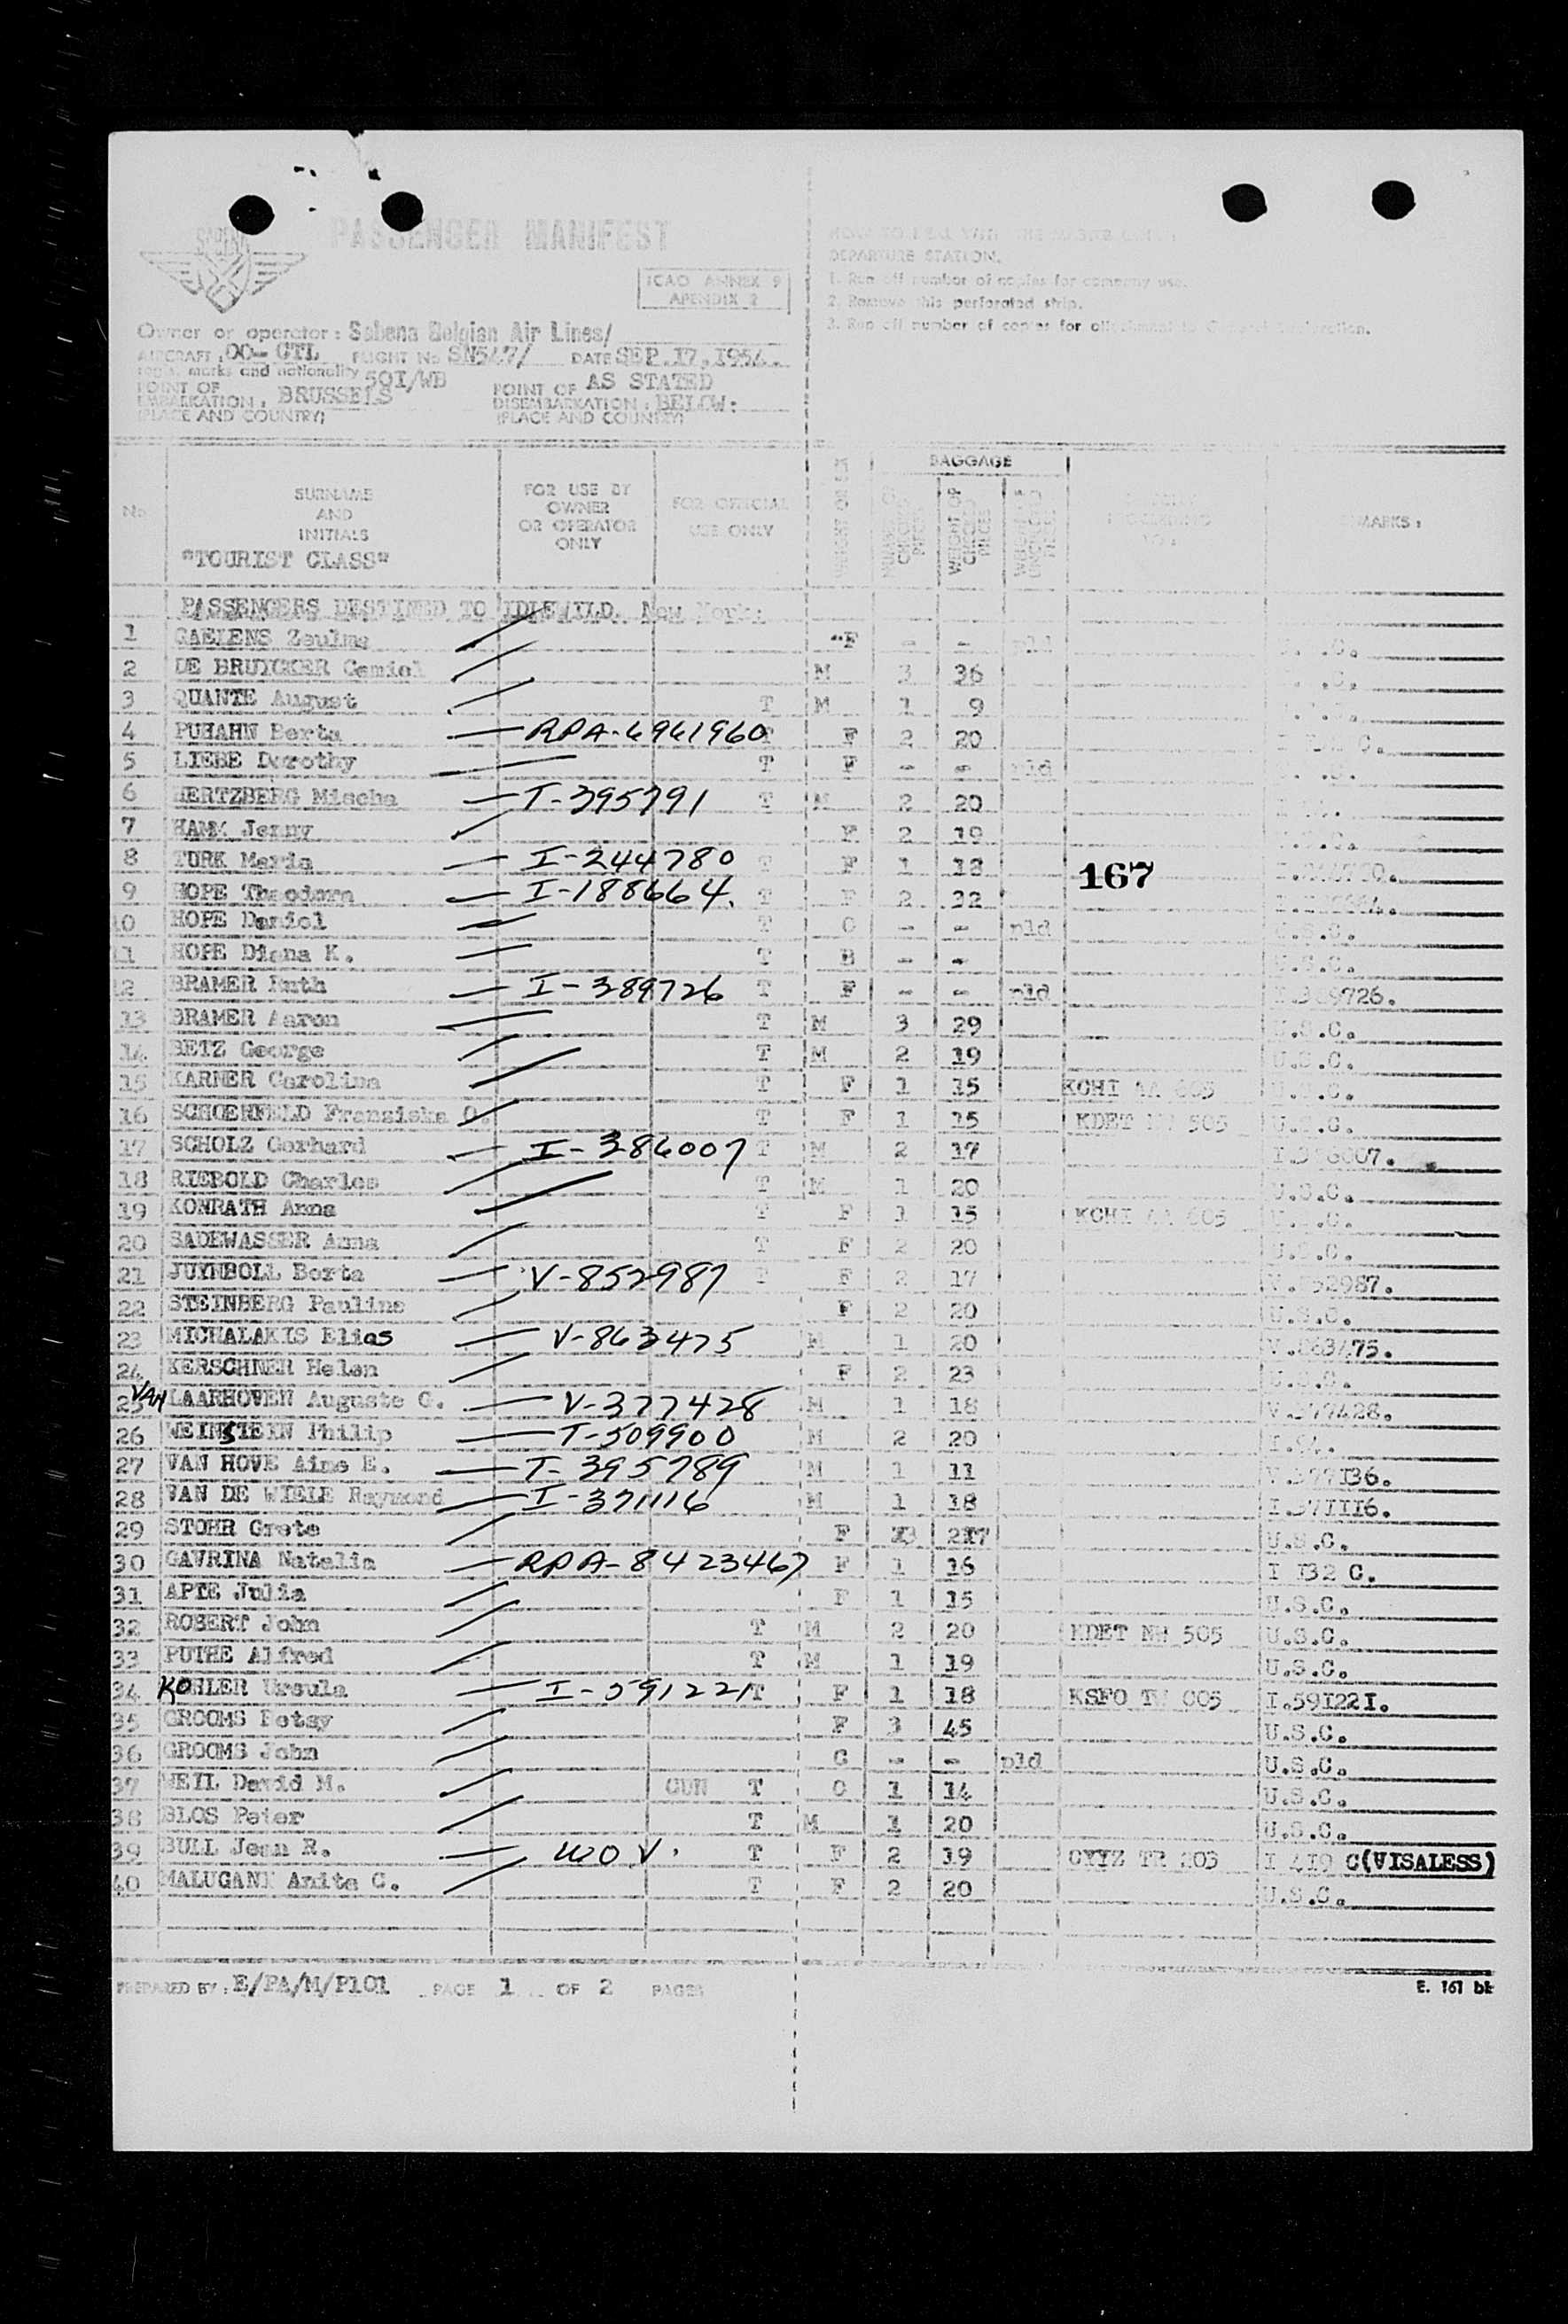 SABENA
PASSENGER MANIFEST
ICAO ANNEX 9
APENDIX 2
DEPARTURE STATION.
1. Run off number of copies for company use.
2. Remove this perforated strip.
3. Run off number of copies for
Owner or operator: Sabena Belgian Air Lines/
AIRCRAFT: OO-CTL FLIGHT No SN547/ DATE SEP.17.1954.
marks and nationality 501/WB
POINT OF EMBARKATION: BRUSSELS POINT OF DISEMBARKATION: AS STATED BELOW:
(PLACE AND COUNTRY) (PLACE AND COUNTRY)
BAGGAGE
No SURNAME AND INITIALS FOR USE BY OWNER OR OPERATOR ONLY FOR OFFICIAL USE ONLY WEIGHT OF CHECKED PIECE REMARKS:
"TOURIST CLASS"
PASSENGERS DESTINED TO IDLEWILD. New York:
1 F - - pld
2 DE BRUYCKER M 3 36
3 QUANTE August T M 1 9
4 PUHAHN Berta RPA-6961960 F 2 20
5 LIEBE Dorothy T F - - pld
6 HERTZBERG Mischa T-395791 T M 2 20
7 HAMM Jenny F 2 19
8 TURK Maria I-244780 T F 1 18
167
9 HOPE Theodora I-188664. T F 2 32
10 HOPE Daniel T C - - pld U.S.C.
11 HOPE Diana K. T B - - U.S.C.
12 BRAMER Ruth I-389726 T F - - pld I.389726.
13 BRAMER Aaron T M 3 29 U.S.C.
14 BETZ George T M 2 19 U.S.C.
15 KARNER Carolina T F 1 15 KCHI AA 605 U.S.C.
16 SCHOENFELD Franziska O. T F 1 15 KDET NW 505 U.S.C.
17 SCHOLZ Gerhard I-386007 T M 2 17 I.386007.
18 RIEBOLD Charles T M 1 20 U.S.C.
19 KONRATH Anna T F 1 15 KCHI AA 605 U.S.C.
20 SADEWASSER Anna T F 2 20 U.S.C.
21 JUYNBOLL Berta V-852987 T F 2 17 V.852987.
22 STEINBERG Pauline F 2 20 U.S.C.
23 MICHALAKIS Elias V-863475 M 1 20 V.863475.
24 KERSCHNER Helen F 2 23 U.S.C.
25 VAN LAARHOVEN Auguste C. V-377428 M 1 18 V.377428.
26 WEINSTEIN Philip T-309900 M 2 20
27 VAN HOVE Aime E. T-395789 M 1 11 V.377136.
28 VAN DE WIELE Raymond I-371116 M 1 18 I.371116.
29 STOHR Grete F U.S.C.
30 GAVRINA Natalia RPA-8423467 F 1 16 I 132 C.
31 APTE Julia F 1 15 U.S.C.
32 ROBERT John T M 2 20 KDET NW 505 U.S.C.
33 PUTHE Alfred T M 1 19 U.S.C.
34 KOHLER Ursula I-591221 T F 1 18 KSFO TW 005 I.591221.
35 GROOMS Betsy F 3 45 U.S.C.
36 GROOMS John C - - pld U.S.C.
37 WEIL David M. GUN T C 1 14 U.S.C.
38 BLOS Peter T M 1 20 U.S.C.
39 BULL Jean R. WOV. T F 2 19 CYYZ TR 203 I 419 C(VISALESS)
40 Anita C. T F 2 20 U.S.C.
PREPARED BY: E/PA/M/P101 PAGE 1 OF 2 PAGES
E. 161 bk